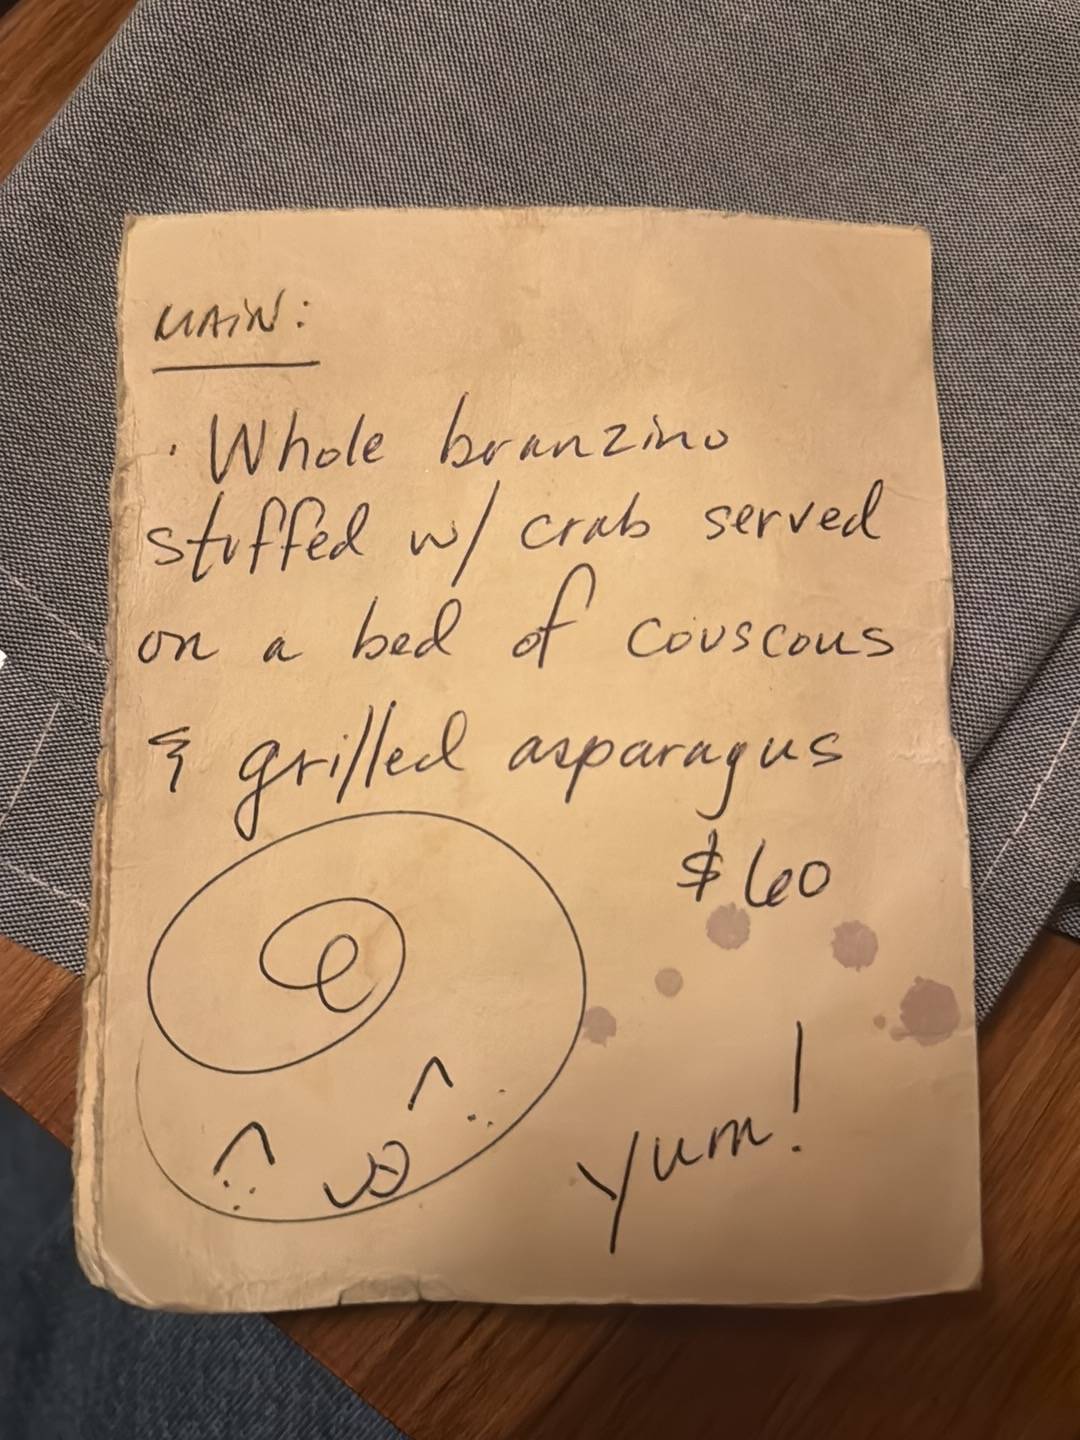 MAIN:
· Whole branzino
stuffed w/ crab served
on a bed of couscous
& grilled asparagus
$60
Yum!